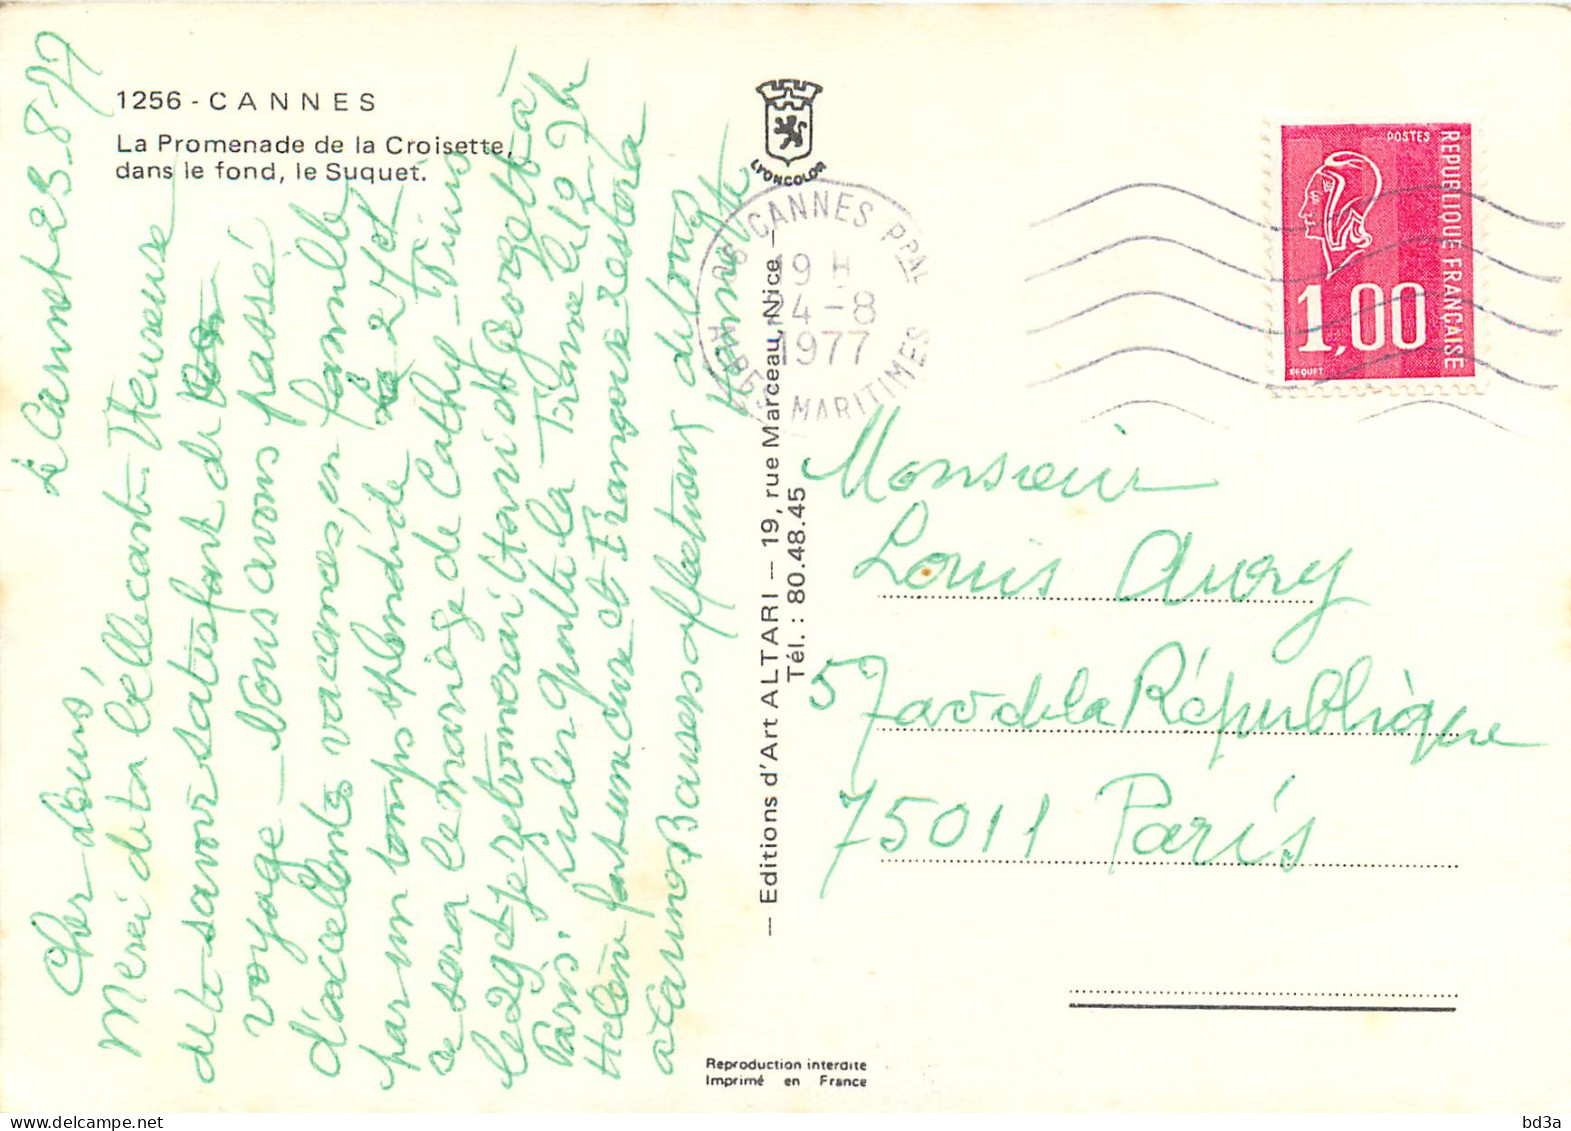 1256 - CANNES
La Promenade de la Croisette,
dans le fond, le Suquet.
LYONCOLOR
Le Cannet 23-8-77
Cher Louis,
Merci de ta belle carte. Heureuse
de te savoir satisfait de
voyage - Nous avons passé
d'excellentes vacances, en famille
par un temps splendide. Le 27 et
ce sera le mariage de Cathy - Puis
le 29 et je retrouverai Henri et Georgette à
Paris.
Hélène et Françoise restera
au Cannet Baisers affectueux de tous
CANNES PPAL
19 H
24-8
1977
ALPES MARITIMES
POSTES
REPUBLIQUE FRANÇAISE
1,00
BEQUET
— Editions d'Art ALTARI — 19, rue Marceau, Nice —
Tél. : 80.48.45
Monsieur
Louis Avry
57 av de la République
75011 Paris
Reproduction interdite
Imprimé en France
bd3a